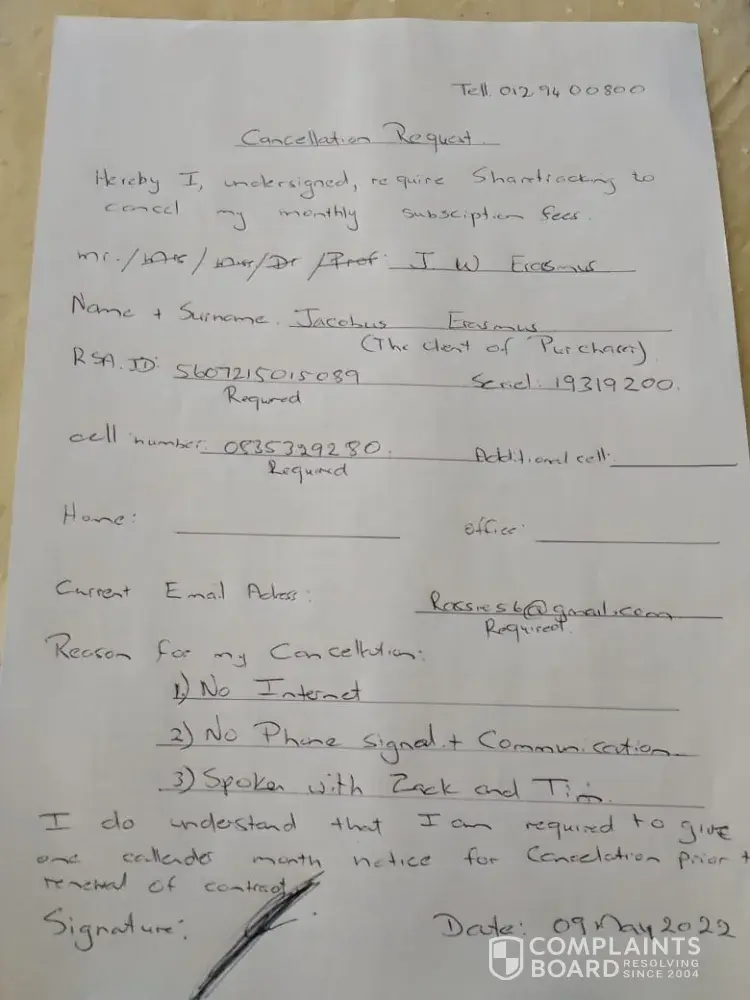 Tell. 012 94 00800
Cancellation Request.
Hereby I, undersigned, require Shamtracking to
cancel my monthly subsciption fees.
Mr. / Mrs / Miss / Dr / Prof. J W Erasmus
Name + Surname. Jacobus Erasmus
(The client of Purchaser)
RSA. ID: 5607215015089 Serial: 19319200.
Required
cell number: 0835329280. Additional cell:
Required
Home: office:
Current Email Adress: Rassie56@gmail.com
Required.
Reason for my Cancellation:
1) No Internet
2) No Phone signal. + Communication
3) Spoken with Zack and Tim.
I do understand that I am required to give
one callender month notice for Cancelation prior t
renewal of contract.
Signature: Date: 09 May 2022
COMPLAINTS
BOARD RESOLVING
SINCE 2004